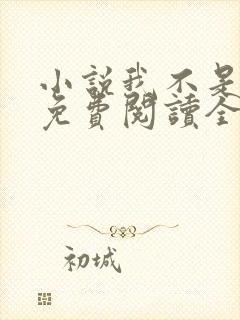 小說我不是
免費閱讀全
初城